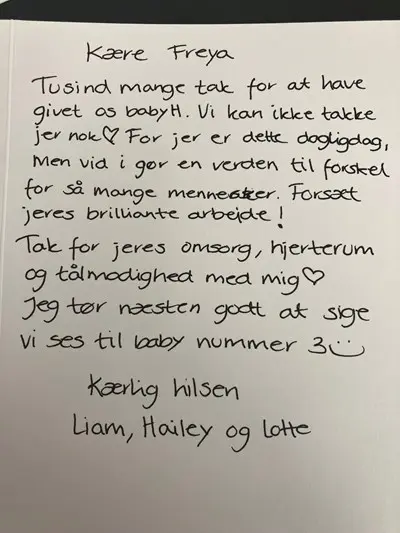 Kære Freya
Tusind mange tak for at have
givet os babyH. Vi kan ikke takke
jer nok♡ For jer er dette dagligdag,
men vid i gør en verden til forskel
for så mange mennesker. Forsæt
jeres brilliante arbejde!
Tak for jeres omsorg, hjerterum
og tålmodighed med mig♡
Jeg tør næsten godt at sige
vi ses til baby nummer 3☺
Kærlig hilsen
Liam, Hailey og Lotte